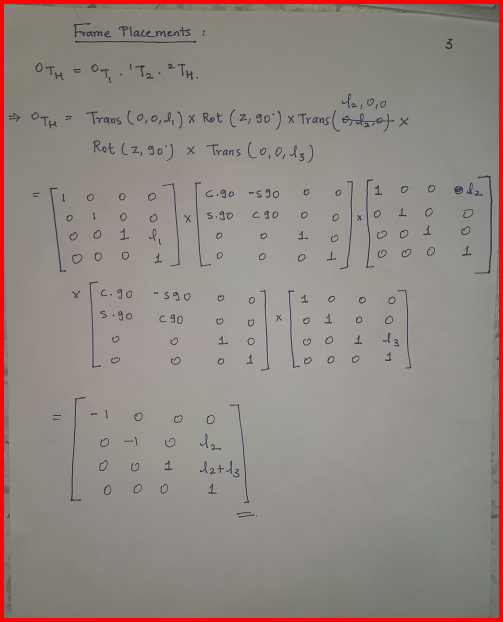 Frame Placements :
3
⁰T_H = ⁰T₁ . ¹T₂ . ²T_H.
l₂,0,0
⇒ ⁰T_H = Trans (0,0,l₁) × Rot (Z, 90°) × Trans( 0,l₂,0) ×
Rot (Z, 90°) × Trans (0,0,l₃)
= [1 0 0 0] × [C.90 -S90 0 0] × [1 0 0 l₂]
[0 1 0 0] [S.90 C90 0 0] [0 1 0 0]
[0 0 1 l₁] [0 0 1 0] [0 0 1 0]
[0 0 0 1] [0 0 0 1] [0 0 0 1]
× [C.90 -S90 0 0] × [1 0 0 0]
[S.90 C90 0 0] [0 1 0 0]
[0 0 1 0] [0 0 1 l₃]
[0 0 0 1] [0 0 0 1]
= [-1 0 0 0]
[0 -1 0 l₂]
[0 0 1 l₂+l₃]
[0 0 0 1]